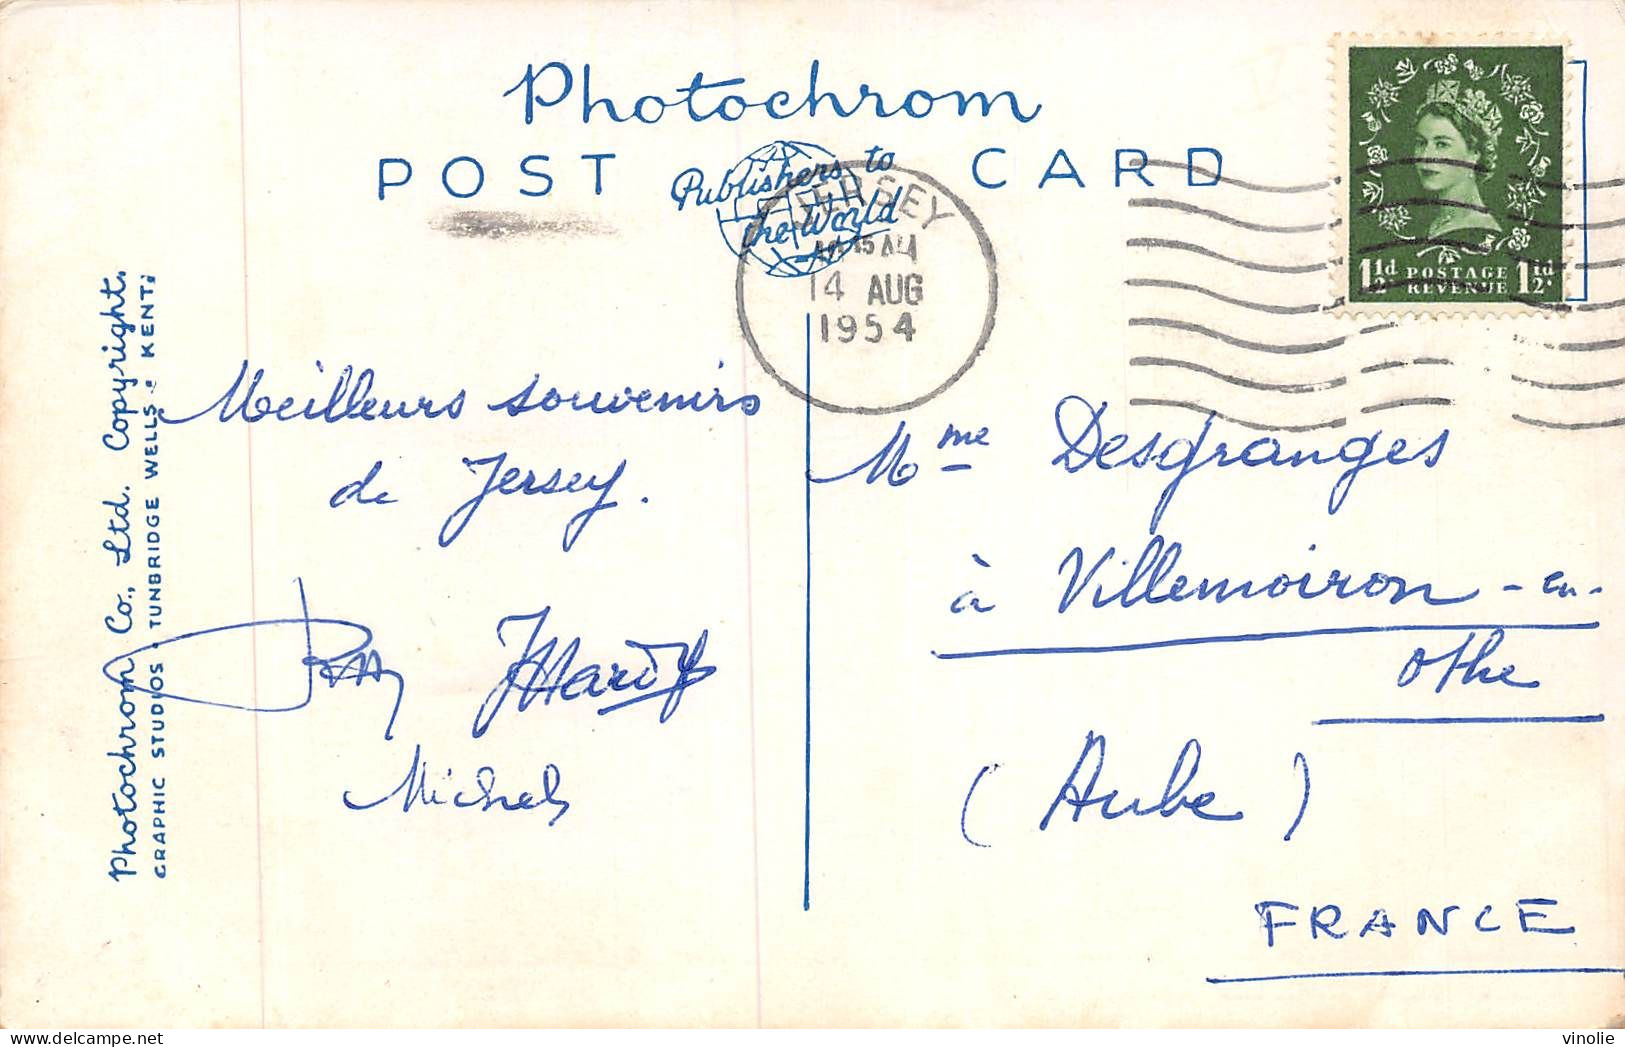 Photochrom
POST CARD
Publishers to
the World
JERSEY
14 AUG
1954
1½d POSTAGE 1½d
REVENUE
Photochrom Co., Ltd. Copyright.
GRAPHIC STUDIOS • TUNBRIDGE WELLS • KENT
Meilleurs souvenirs
de Jersey.
JHardy
Michel
Mme Desgranges
à Villemoiron-en-
Othe
(Aube)
FRANCE
vinolie